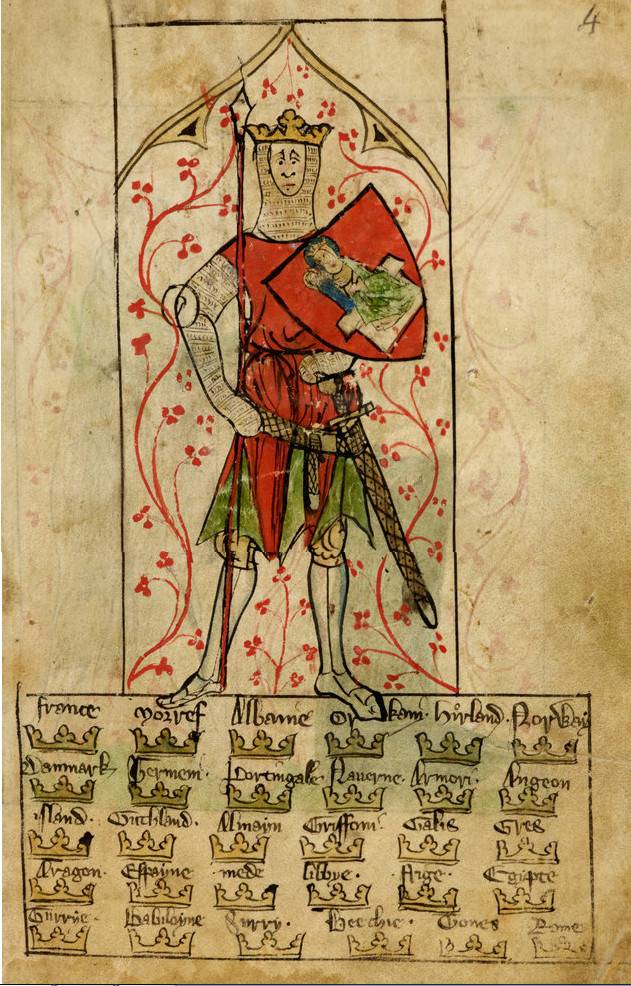 4
france norref Albanie Orkani hirland Norway
Danmark Germeni Portingale Nauerne Armori Angeon
island Guthland Almayn Griffoni Galis Gres
Aragon Espayne mede libye frige Egipte
Surrye Babiloyne Turry Gones Rome